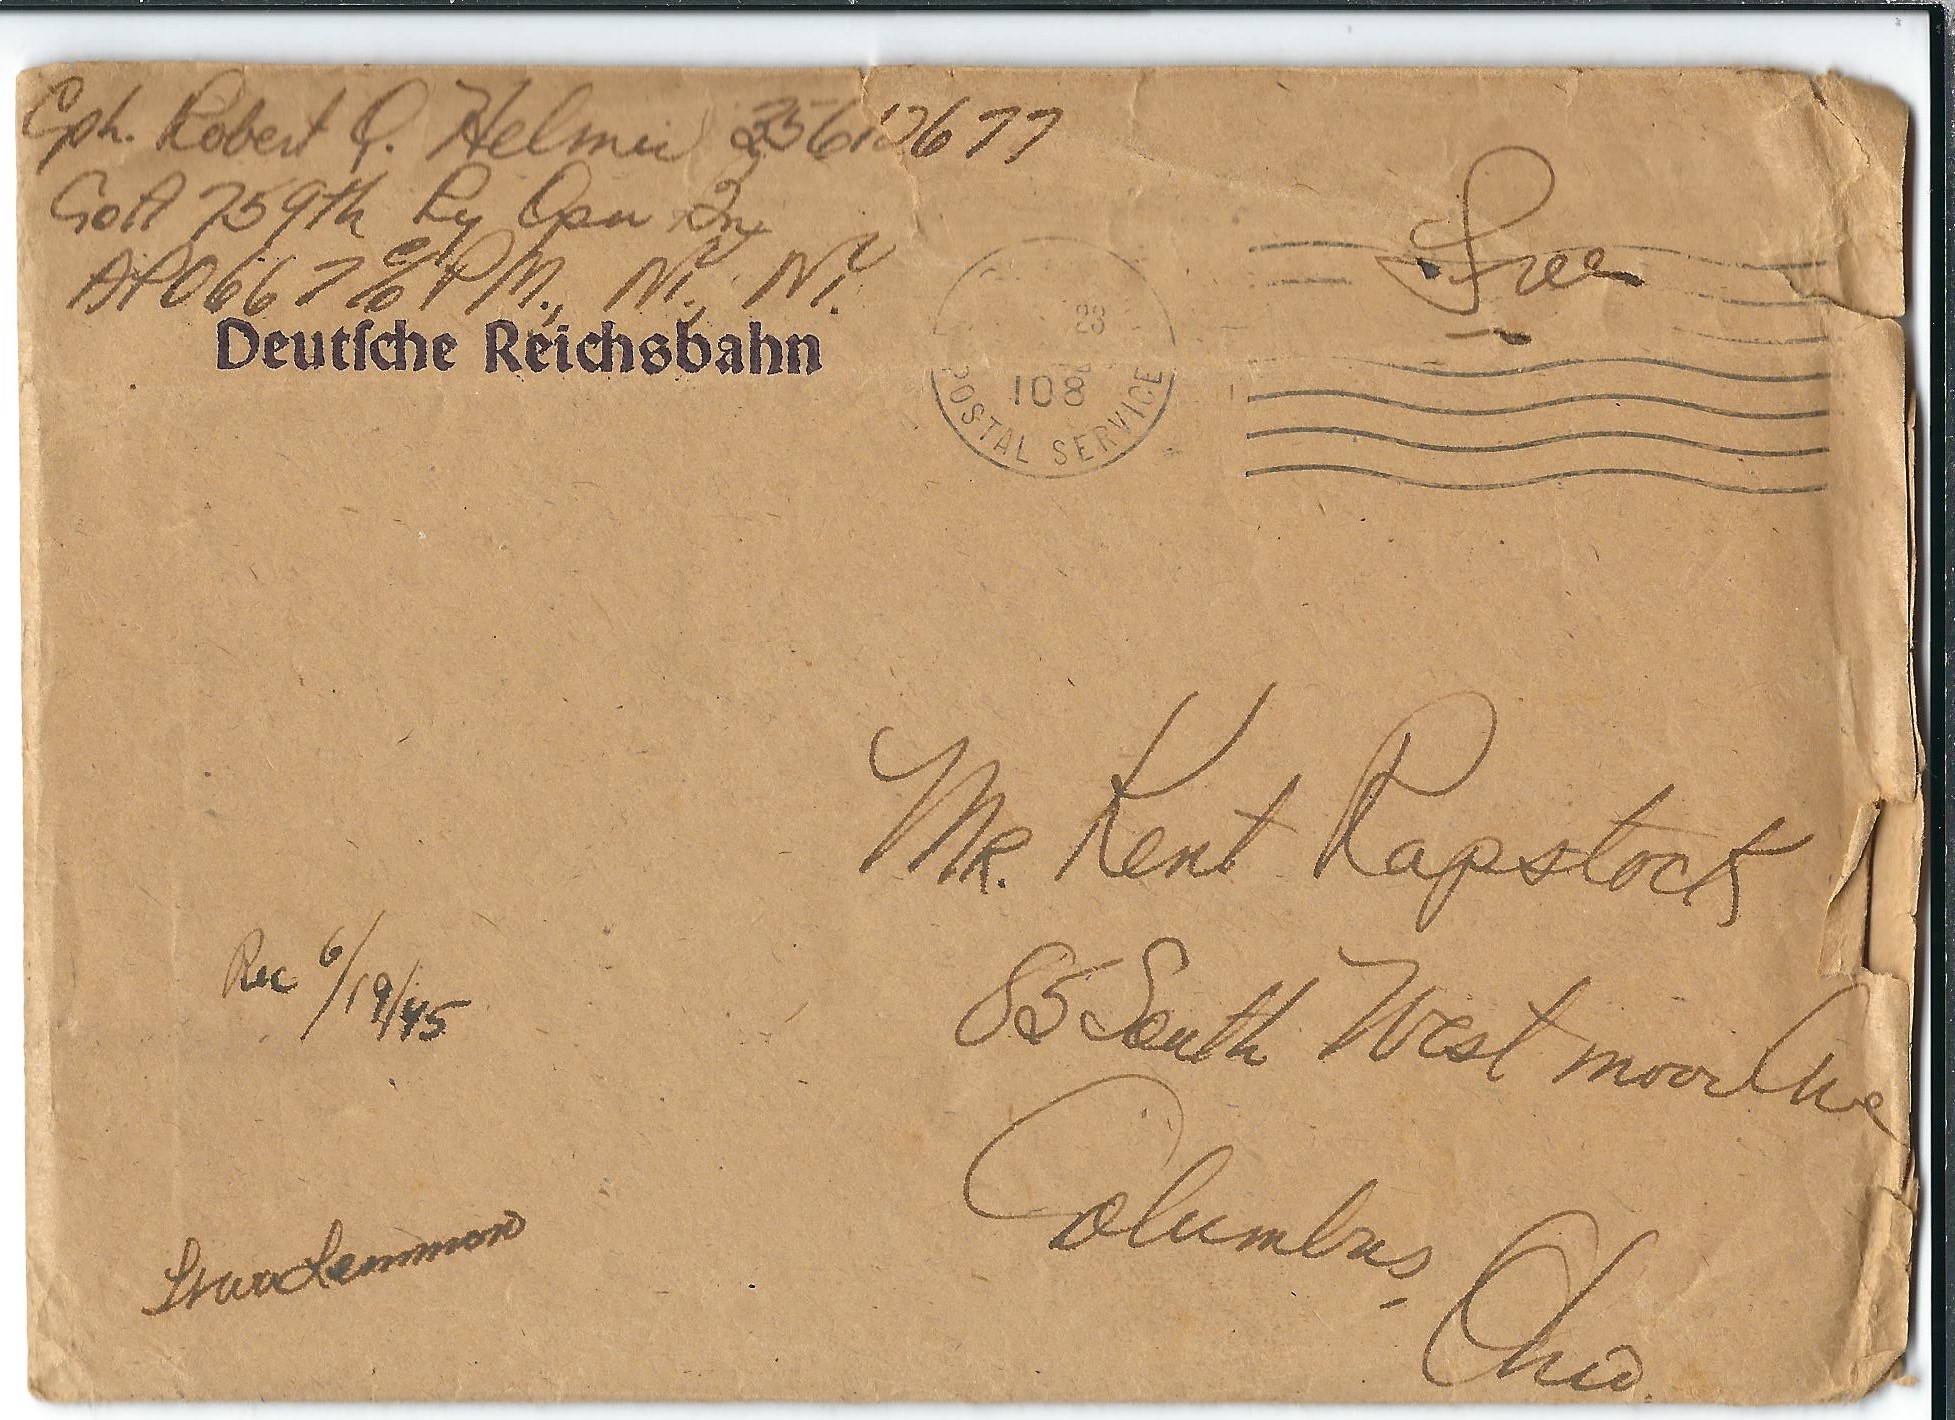 Cpl. Robert Q. Helmer 35612677
Co A 759th Ry Opn Bn
APO 667 c/o PM., N.Y., N.Y.
Deutſche Reichsbahn
Free
23
108
POSTAL SERVICE
Mr. Kent Rapstock
85 South West moor Ave
Columbus, Ohio.
Rec 6/19/45
Lemmon